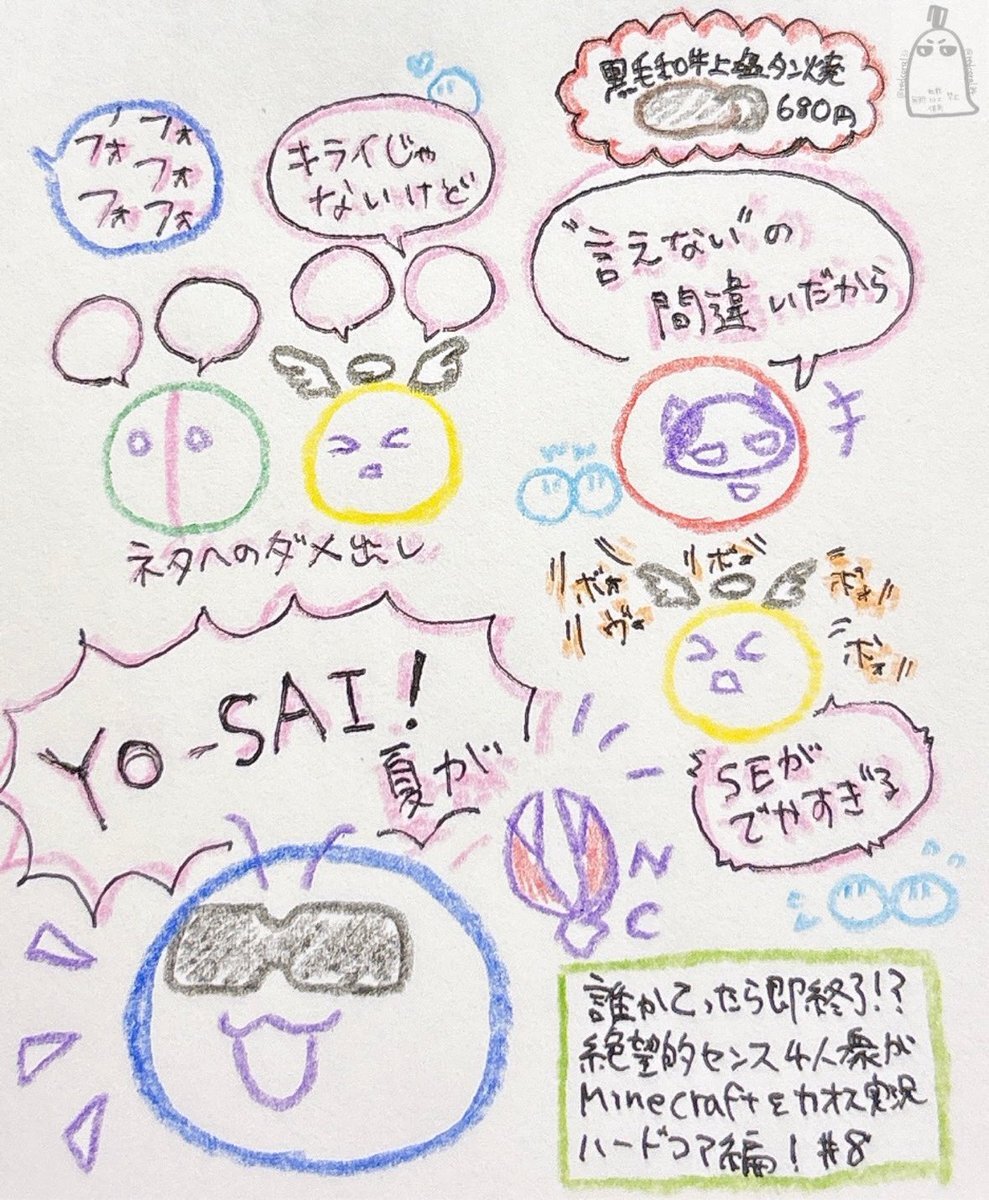 フォ フォ
フォ フォ
フォ フォ
キライじゃ
ないけど
黒毛和牛上塩タン焼
680円
"言えない"の
間違いだから
ネタへのダメ出し
ボォ
ボォ
ボォ
ヴォ
ボォ
YO-SAI!
夏が
SEが
でかすぎる
N
C
誰かてったら即終了!?
絶望的センス4人衆が
Minecraftをカオス実況
ハードコア編!#8